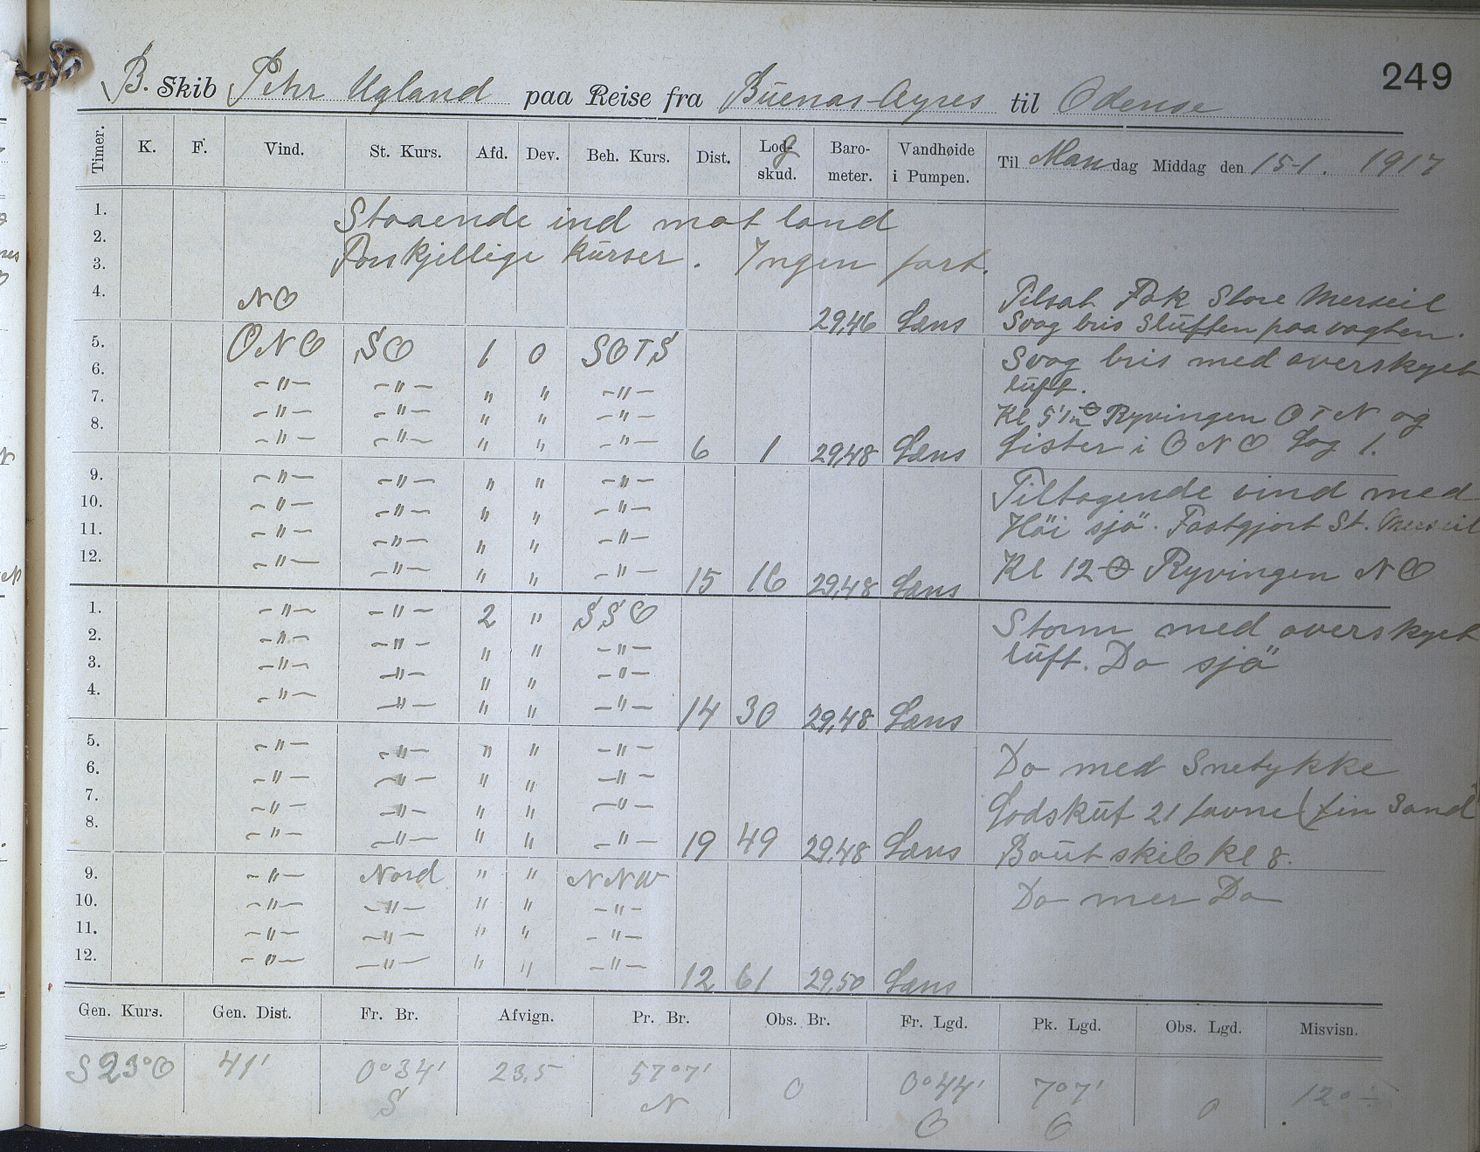 249
B. Skib Peter Ugland paa Reise fra Buenos-Ayres til Odense
Timer. K. F. Vind. St. Kurs. Afd. Dev. Beh. Kurs. Dist. Logskud. Barometer. Vandhøide i Pumpen. Til Mandag Middag den 15-1. 1917
1. Staaende ind mot land
2.
3. Forskjellige Kurser. Ingen fart.
4. NO 29,46 Læns Tilsat Fok Store Merseil
Svag bris Sluften paa vagten.
5. ONO SO 1 0 SOTS Svag bris med overskyet
6. -"- -"- " " -"- luft.
7. -"- -"- " " -"- Ryvingen O T N og
8. -"- -"- " " -"- 6 1 29,48 Læns Lister i ONO Log 1.
9. -"- -"- " " -"- Tiltagende vind med
10. -"- -"- " " -"- Höi sjö. Fastgjort St. Merseil
11. -"- -"- " " -"-
12. -"- -"- " " -"- 15 16 29,48 Læns Kl 12 Ryvingen NO
1. -"- -"- 2 " SSO Storm med overskyet
2. -"- -"- " " -"- luft. Do sjö
3. -"- -"- " " -"-
4. -"- -"- " " -"- 14 30 29,48 Læns
5. -"- -"- " " -"- Do med Snetykke
6. -"- -"- " " -"-
7. -"- -"- " " -"- Lodskut 21 favne (fin Sand
8. -"- -"- " " -"- 19 49 29,48 Læns Baut skib Kl 8.
9. -"- Nord " " NNW Do mer Do
10. -"- -"- " " -"-
11. -"- -"- " " -"-
12. -"- -"- " " -"- 12 61 29,50 Læns
Gen. Kurs. Gen. Dist. Fr. Br. Afvign. Pr. Br. Obs. Br. Fr. Lgd. Pk. Lgd. Obs. Lgd. Misvisn.
S 23° O 41' 0°34' S 23,5 57°7' N 0 0°44' O 7°7' O 0 12° ÷